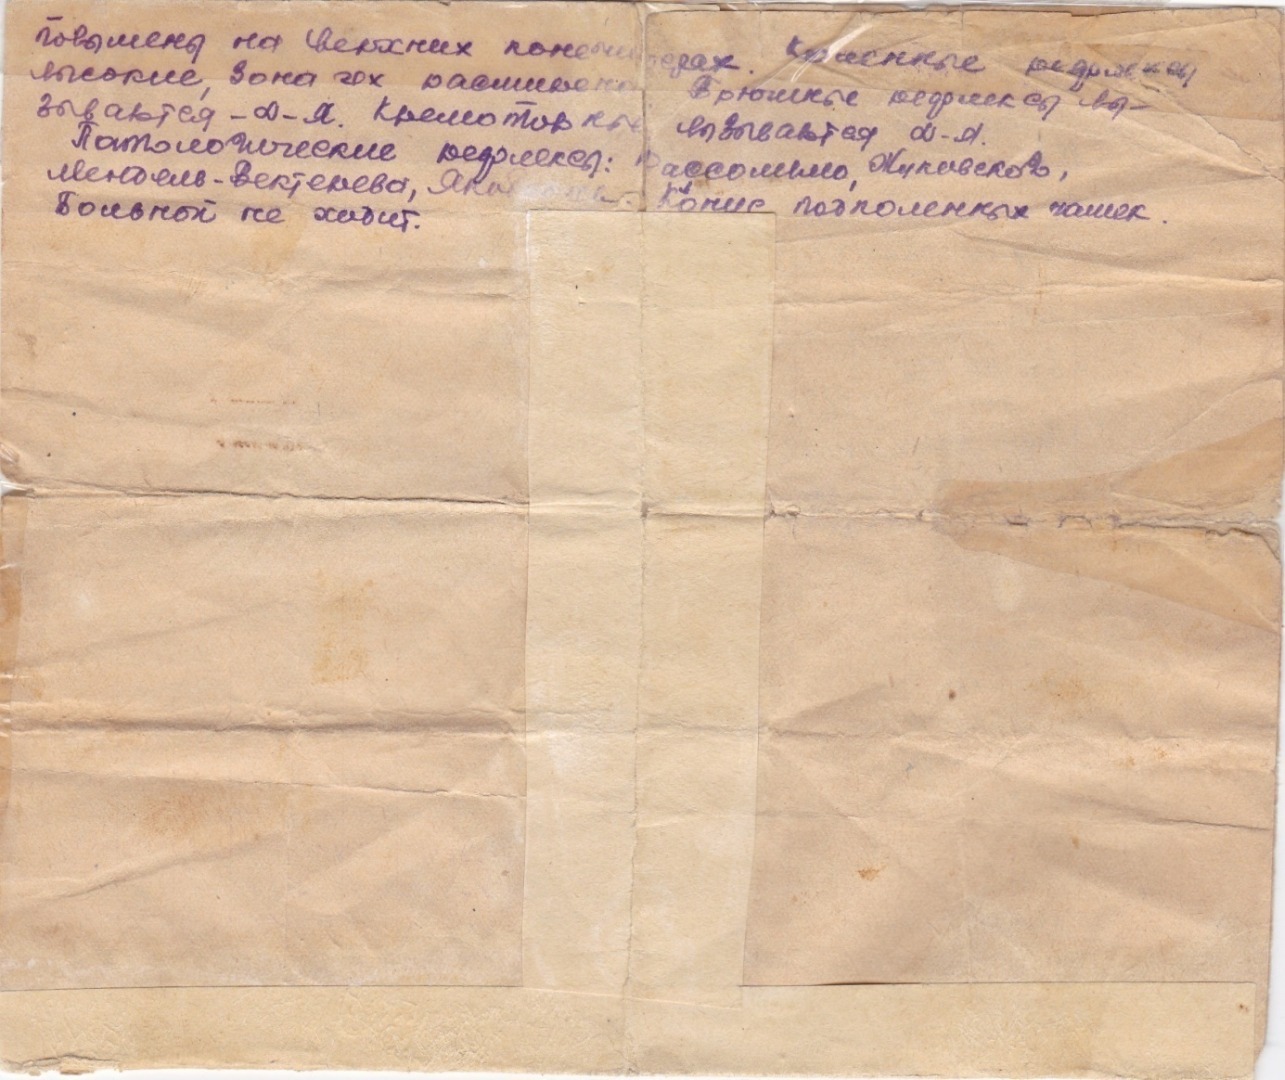 повышены на верхних конечностях. Коленные рефлексы
высокие, зона их расширена. Брюшные рефлексы вы-
зываются - D-Л. Кремоторные вызываются D-Л.
Патологические рефлексы: Россолимо, Жуковского,
Мендель-Бехтерева, Клонис подколенных чашек.
Больной не ходит.